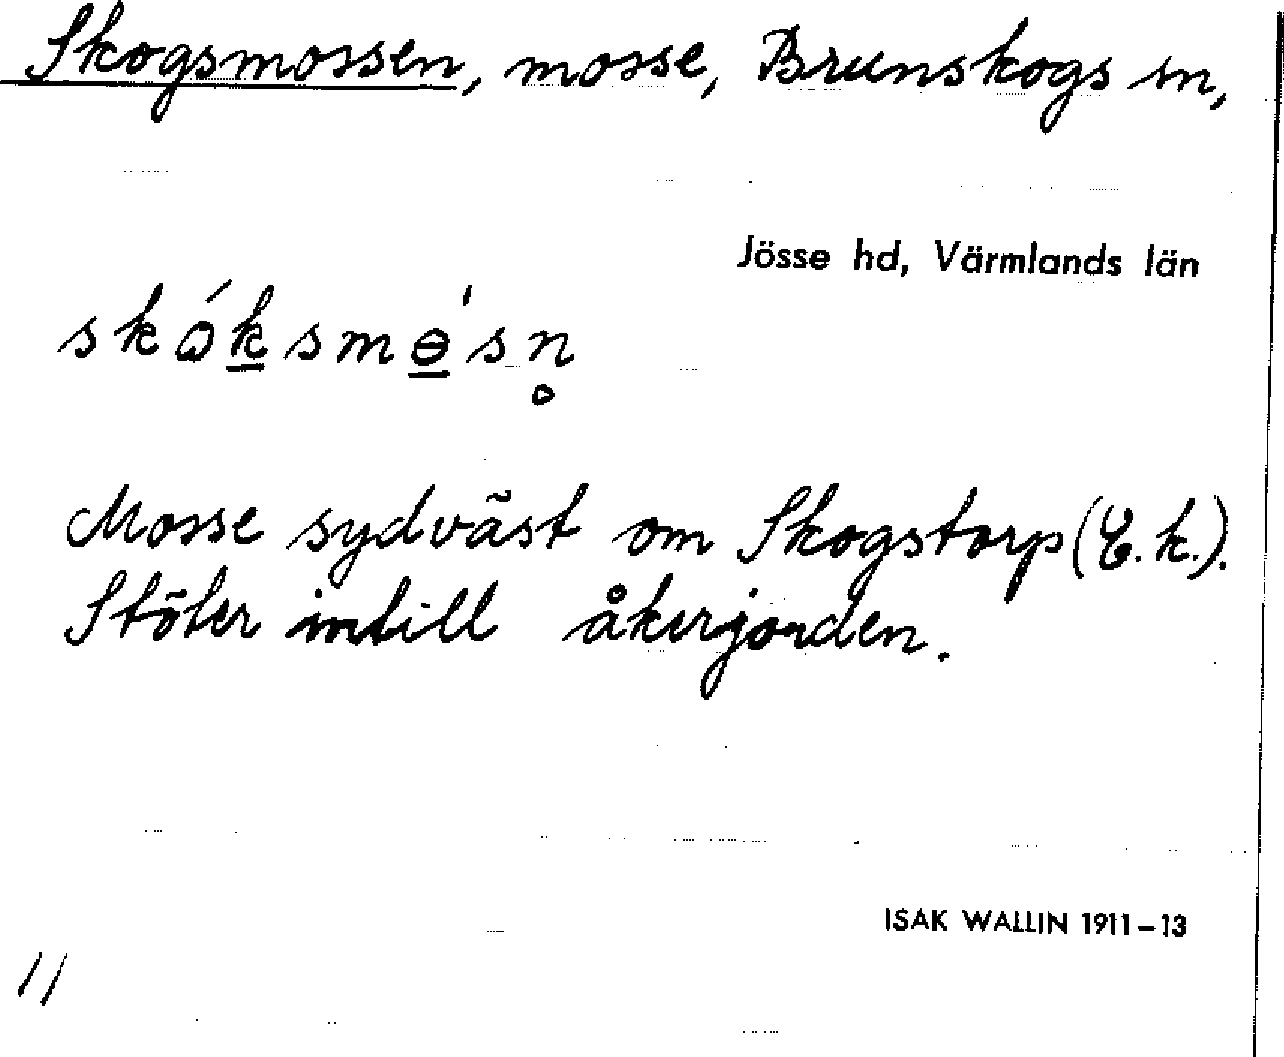 Skogsmossen, mosse, Brunskogs sn,
Jösse hd, Värmlands län
skɷ́ksmɵ̠ˈsn̥
Mosse sydväst om Skogstorp (E.k.).
Stöter intill åkerjorden.
ISAK WALLIN 1911–13
11